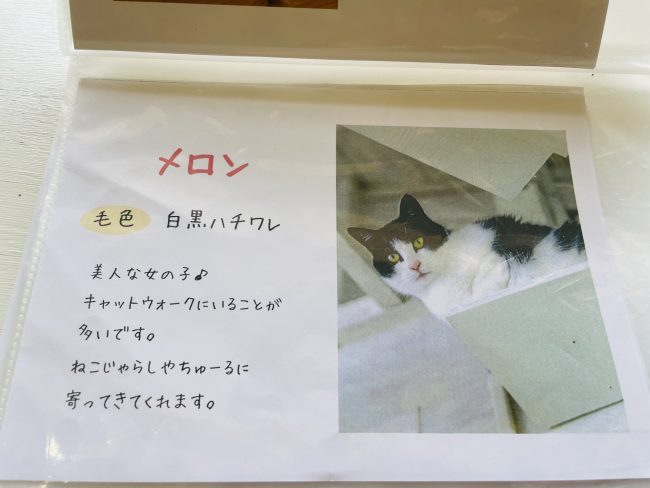 メロン
毛色 白黒ハチワレ
美人な女の子♪
キャットウォークにいることが
多いです。
ねこじゃらしやちゅーるに
寄ってきてくれます。